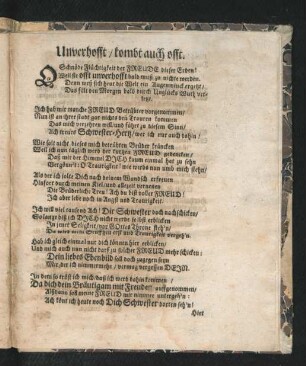 Unverhofft / kombt auch offt.
O Schnöde Flüchtigkeit der FREUDE dieser Erden!
Weil sie offt unverhofft bald muß zu nichte werden.
Denn was sich heut die Welt ein Augenwinck ergetzt /
Das soll den Morgen bald durch Unglücks Wuth verletzt.
Ich hab mir manche FREUD Betrübter vorgenommen /
Nun ist an ihrer statt gar nichts den Trauren kommen
Das mich verzehren will / und führet zu diesem Sinn /
Ach meine Schwester-Hertz / wer ich nur auch dahin!
Wie solt nicht dieses mich betrübten Bruder kräncken
Weil ich nun gleich werd der vorhin FREUDE gedencken /
Daß mir der Himmel DICH kaum einmal hat zu sehn
Vergönnt: O Traurigkeit! was wirds nun umb mich stehn /
Als der ich solte Dich nach deinem Wundsch erkennen
Hinfort durch meinen Kiel / und allezeit vernennen
Die Brüderliche Treu! Ach du bist voller FREUD!
Ich aber lebe noch in Angst und Traurigkeit.
Ich will viel tausend Ach! Dir Schwester nach schicken /
So lange biß ich DICH nicht werde so selbst erblicken
In jener Seligkeit / vor Gottes Throne stehn /
Da unser beyder Hertz und Traurigkeit vergeh'n.
Hab ich gleich einmal nur dich können hier erblicken /
Und mich auch nun nicht darff zu solcher FREUD mehr schicken /
Dein liebes Ebenbild soll doch zugegen seyn
Mir / der ich nimmermehr / vermag vergessen DEIN.
In dem so tröst ich mich daß ich werd dahin kommen /
Da dich dein Bräutigam mit Freuden auffgenommen /
Alsdann soll meine FREUD mir nimmer untergehn:
Ach könt ich heute noch Dich Schwester dorten seh'n!
Hier